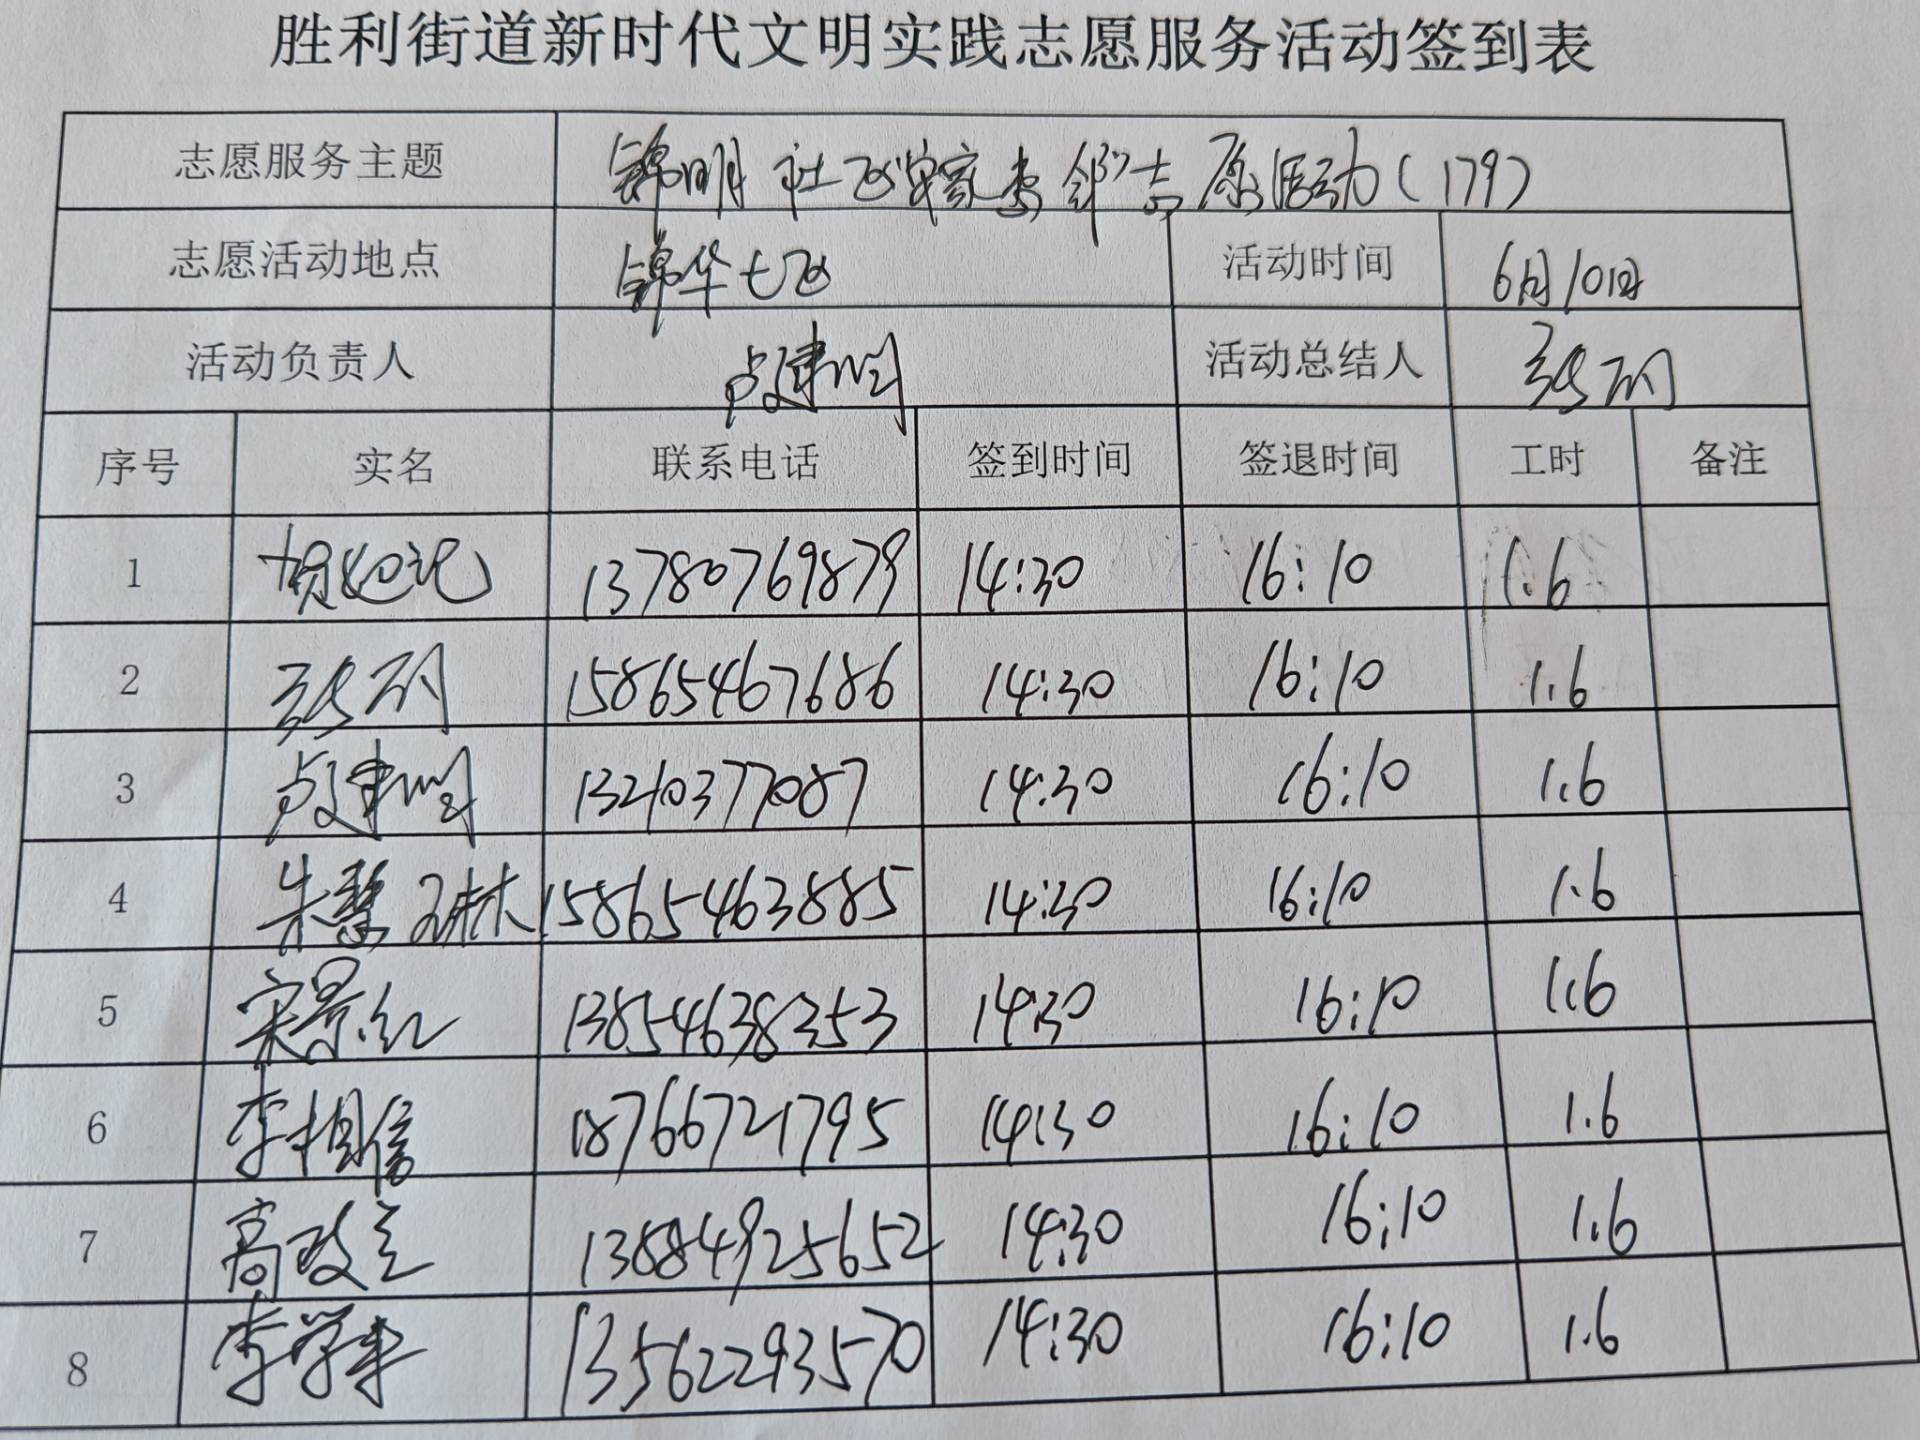 胜利街道新时代文明实践志愿服务活动签到表
志愿服务主题 锦明社区 志愿活动(179)
志愿活动地点 锦华七区 活动时间 6月10日
活动负责人 活动总结人
序号 实名 联系电话 签到时间 签退时间 工时 备注
1 13780769879 14:30 16:10 1.6
2 15865467686 14:30 16:10 1.6
3 13210377087 14:30 16:10 1.6
4 朱慧琳 15865463885 14:30 16:10 1.6
5 宋景红 13854638353 14:30 16:10 1.6
6 李相信 18766721795 14:30 16:10 1.6
7 高政 13884925652 14:30 16:10 1.6
8 李学 13562293570 14:30 16:10 1.6